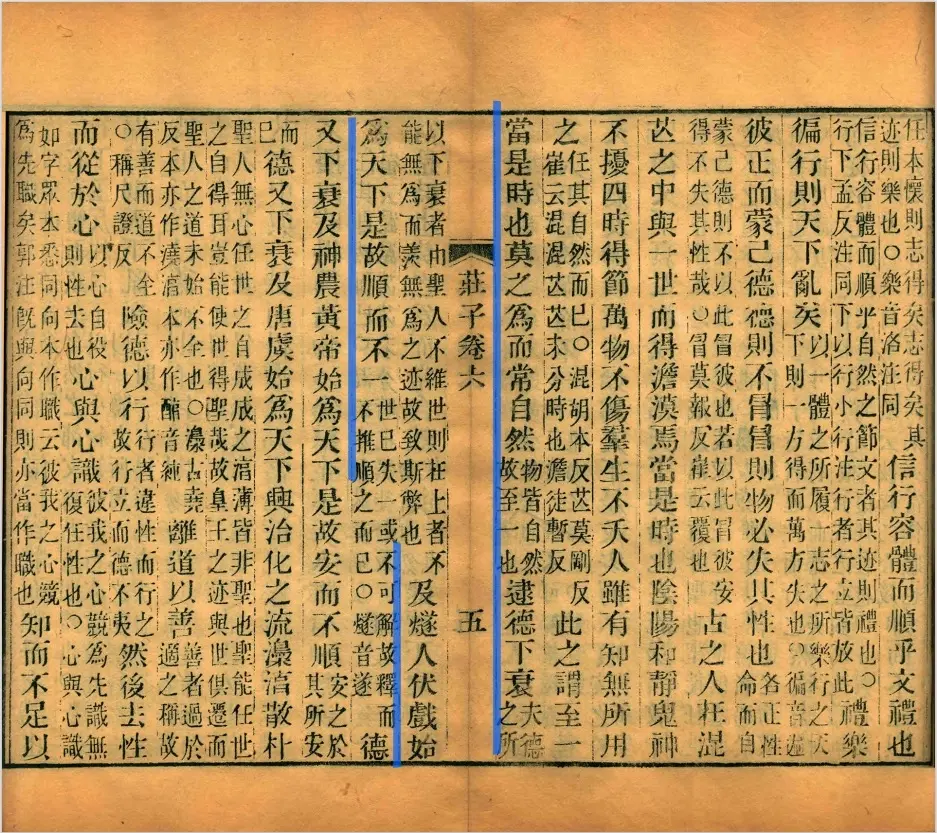 任本懷則志得矣志得矣其迹則樂也○樂音洛注同信行容體而順乎文禮也
信行容體而順乎自然之節文者其迹則禮也○行下孟反注同下以行小行注行者行立皆放此禮樂
徧行則天下亂矣以一體之所履一志之所樂行之天下則一方得而萬方失也○徧音遍
彼正而蒙己德德則不冒冒則物必失其性也各正性命而自
蒙己德則不以此冒彼也若以此冒彼安得不失其性哉○冒莫報反崔云覆也古之人在混
芒之中與一世而得澹漠焉當是時也陰陽和靜鬼神
不擾四時得節萬物不傷羣生不夭人雖有知無所用
之任其自然而已○混胡本反芒莫剛反崔云混混芒芒未分時也澹徒暫反此之謂至一
當是時也莫之為而常自然物皆自然故至一也逮德下衰夫德之所
莊子卷六 五
以下衰者由聖人不維世則在上者不能無為而羨無為之迹故致斯弊也及燧人伏戲始
為天下是故順而不一世已失一或不可解故釋而不推順之而已○燧音遂德
又下衰及神農黃帝始為天下是故安而不順安之於其所安
而已德又下衰及唐虞始為天下興治化之流淳散朴
聖人無心任世之自成成之淳薄皆非聖也聖能任世之自得耳豈能使世得聖哉故皇王之迹與世俱遷而
聖人之道未始不全也○古堯反本亦作澆淳本亦作醇音純離道以善善者過於適之稱故
有善而道不全○稱尺證反險德以行行者違性而行之故行立而德不夷然後去性
而從於心以心自役則性去也心與心識彼我之心競為先識無復任性也○心與心識
如字眾本悉同向本作職云彼我之心競為先職矣郭注既與向同則亦當作職也知而不足以